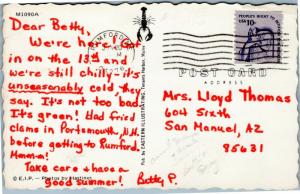 M1090A
Dear Betty,
We're here! Got
in on the 13th and
we're still chilly - it's
unseasonably cold, they
say. It's not too bad.
It's green! Had fried
clams in Portsmouth, N.H.
before getting to Rumford.
Mmmm!
Take care & have a
good summer! Betty P.
© E.I.P. - Photos by Hastings
Pub. by EASTERN ILLUSTRATION, Tenants Harbor, Maine
RUMFORD
PEOPLE'S RIGHT TO
USA 10c
POST CARD
ADDRESS
Mrs. Lloyd Thomas
604 Sixth
San Manuel, AZ
85631